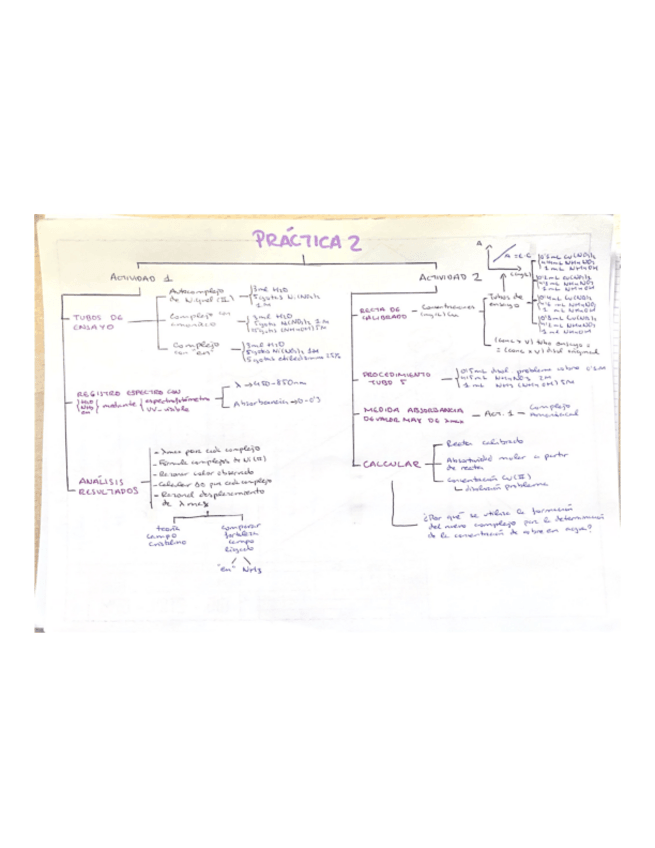 PRÁCTICA 2
ACTIVIDAD 1
TUBOS DE
ENSAYO
Autocomplejo
de Niquel (II)
3 ml H2O
5 gotas Ni(NO3)2
1 M
Complejo con
amoniaco
3 ml H2O
5 gotas Ni(NO3)2 1 M
5 gotas (NH4OH) 5M
Complejo
con "en"
3 ml H2O
5 gotas Ni(NO3)2 1M
5 gotas etilendiamina 25%
REGISTRO ESPECTRO CON
H2O
NH3
en
mediante
espectrofotómetro
UV-visible
λ → 450-850nm
Absorbancia → 0-0'3
ANÁLISIS
RESULTADOS
- λmax para cada complejo
- Fórmula complejos de Ni(II)
- Razonar color observado
- Calcular Δo para cada complejo
- Razona desplazamiento
de λ max
teoría
campo
cristalino
comparar
fortaleza
campo
ligando
"en" NH3
ACTIVIDAD 2
RECTA DE
CALIBRADO
Concentraciones
Tubos de
ensayo
A
0'2 mL Cu(NO3)2
1 mL NH4OH
(conc x V) tubo ensayo =
PROCEDIMIENTO
TUBO 5
0'5 mL disol. problema cobre
MEDIDA ABSORBANCIA
DE VALOR MAX DE λmax
Act. 1
Complejo
amoniacal
CALCULAR
Recta calibrado
Absortividad molar a partir
de recta
Concentración Cu(II)
disolución problema
¿Por qué se utiliza la formación
del nuevo complejo para la determinación
de la concentración de cobre en agua?